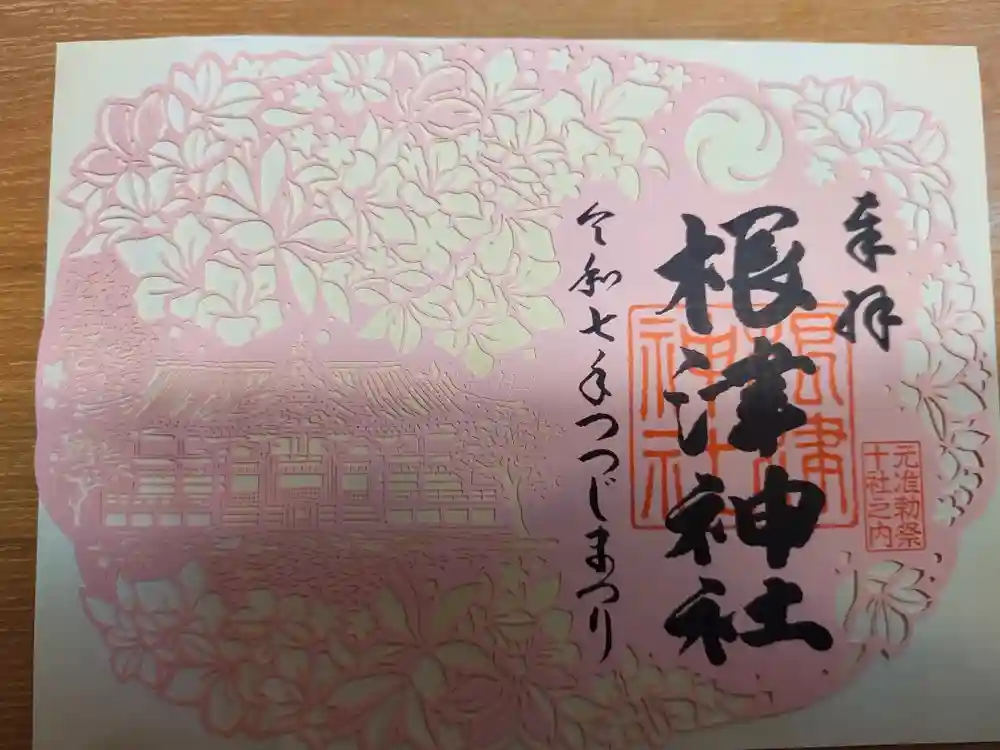 奉拝
根津神社
根津
神社
元准勅祭
十社之内
令和七年つつじまつり